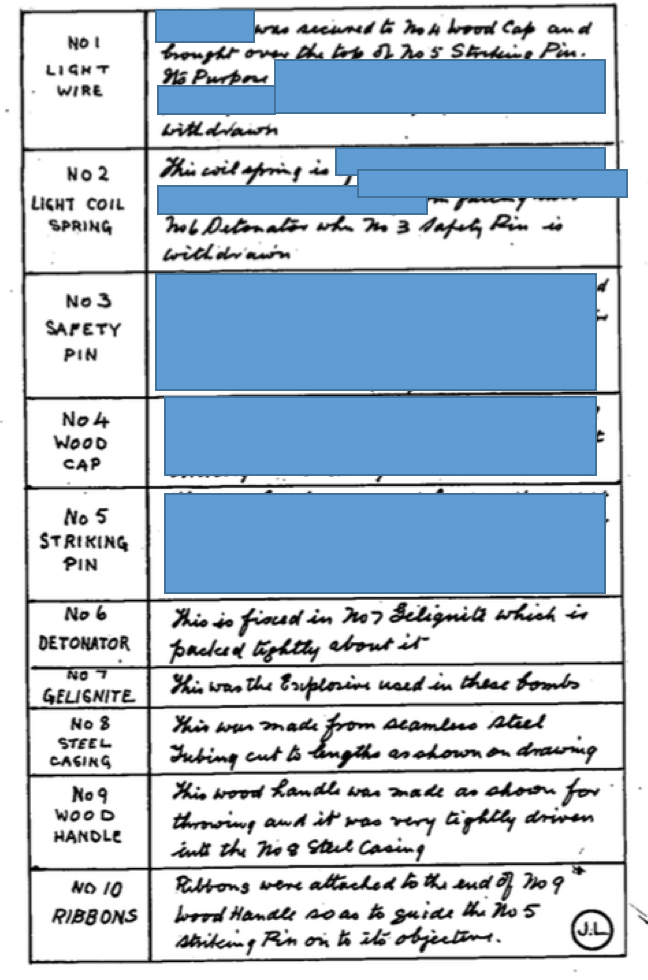 No 1
LIGHT
WIRE
was secured to No 4 Wood Cap and
brought over the top of No 5 Striking Pin.
Its Purpose
withdrawn
No 2
LIGHT COIL
SPRING
This coil spring is
No 6 Detonator when No 3 Safety Pin is
withdrawn
No 3
SAFETY
PIN
No 4
WOOD
CAP
No 5
STRIKING
PIN
No 6
DETONATOR
This is fixed in No 7 Gelignite which is
packed tightly about it
No 7
GELIGNITE
This was the Explosive used in these bombs
No 8
STEEL
CASING
This was made from seamless steel
Tubing cut to lengths as shown on drawing
No 9
WOOD
HANDLE
This wood handle was made as shown for
throwing and it was very tightly driven
into the No 8 Steel Casing
NO 10
RIBBONS
Ribbons were attached to the end of No 9
Wood Handle so as to guide the No 5
striking Pin on to its objective.
J.L